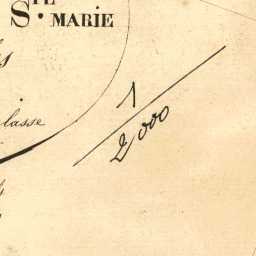 Ste MARIE
lasse
1/2000